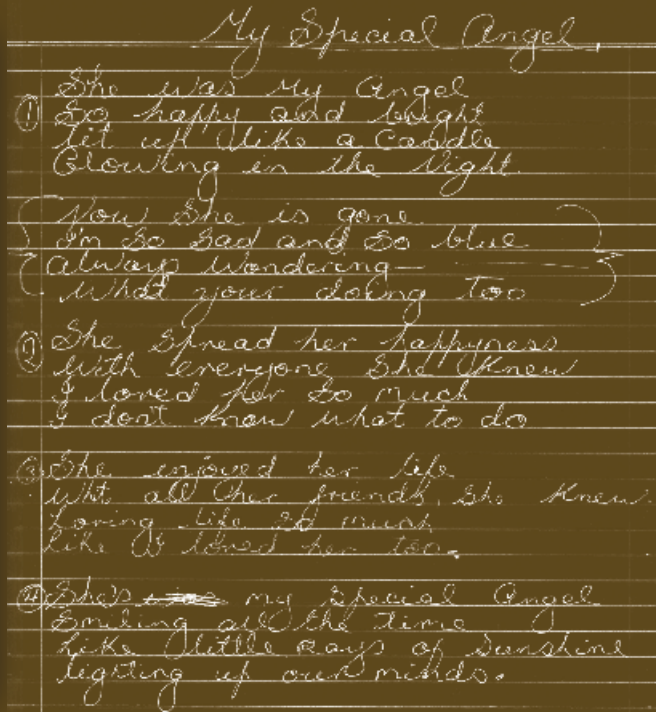 My Special Angel
She was My Angel
① So happy and bright
lit up like a Candle
Glowing in the Night.
Now She is gone
I'm So Sad and So blue
always wondering—
what your doing too
② She Spread her happyness
With everyone She Knew
I loved her So much
I don't know what to do
③ She enjoyed her life
wht all her friends, She Knew.
Loving life so much
like I loved her too.
④ She's my Special Angel
Smiling all the time
Like little Rays of Sunshine
lighting up our minds.